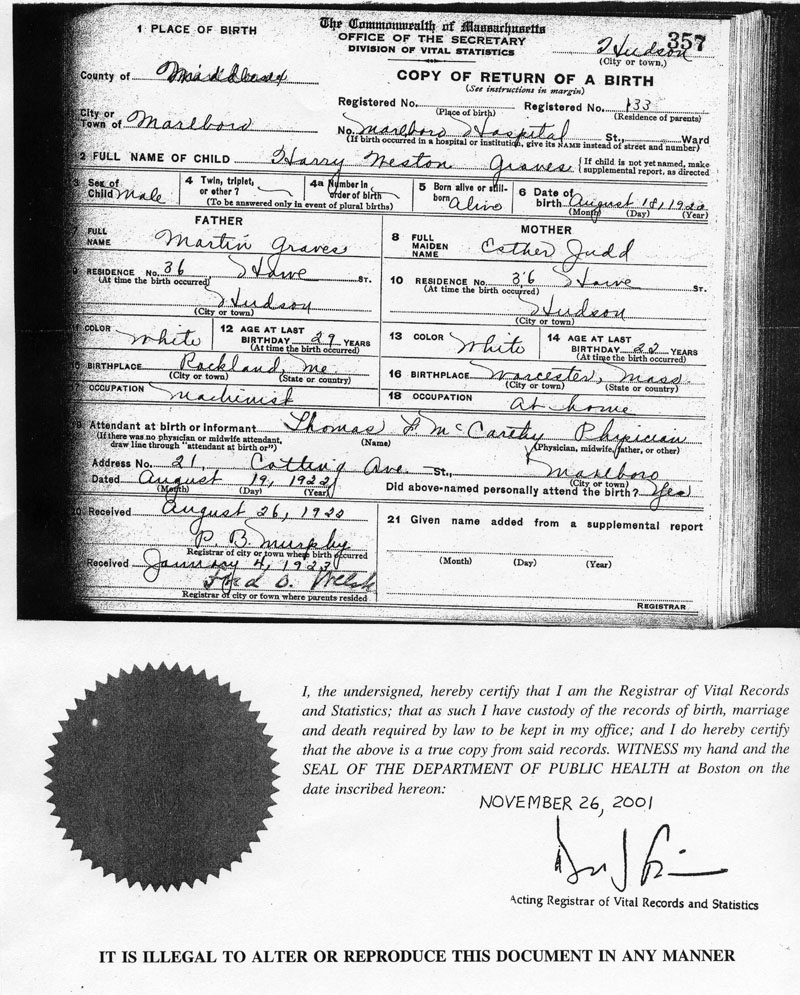 The Commonwealth of Massachusetts
OFFICE OF THE SECRETARY
DIVISION OF VITAL STATISTICS
357
1 PLACE OF BIRTH
Hudson
(City or town.)
County of Middlesex
COPY OF RETURN OF A BIRTH
(See instructions in margin)
City or Town of Marlboro
Registered No. (Place of birth) Registered No. 133 (Residence of parents)
No. Marlboro Hospital St., Ward
(If birth occurred in a hospital or institution, give its NAME instead of street and number)
2 FULL NAME OF CHILD Harry Weston Graves (If child is not yet named, make supplemental report, as directed
3 Sex of Child Male 4 Twin, triplet, or other? 4a Number in order of birth 5 Born alive or still-born Alive 6 Date of birth August 18, 1922
(To be answered only in event of plural births) (Month) (Day) (Year)
FATHER
7 FULL NAME Martin Graves
9 RESIDENCE No. 36 Howe ST.
(At time the birth occurred)
Hudson
(City or town)
11 COLOR White 12 AGE AT LAST BIRTHDAY 29 YEARS
(At time the birth occurred)
15 BIRTHPLACE Rockland, Me.
(City or town) (State or country)
17 OCCUPATION Machinist
MOTHER
8 FULL MAIDEN NAME Esther Judd
10 RESIDENCE No. 36 Howe ST.
(At time the birth occurred)
Hudson
(City or town)
13 COLOR White 14 AGE AT LAST BIRTHDAY 22 YEARS
(At time the birth occurred)
16 BIRTHPLACE Worcester, Mass.
(City or town) (State or country)
18 OCCUPATION At home
19 Attendant at birth or informant Thomas F McCarthy Physician
(If there was no physician or midwife attendant, draw line through "attendant at birth or") (Name) (Physician, midwife, father, or other)
Address No. 21, Cotting Ave. St., Marlboro
(City or town)
Dated August 19, 1922 Did above-named personally attend the birth? Yes
(Month) (Day) (Year)
20 Received August 26, 1922
P. B. Murphy
Registrar of city or town where birth occurred
Received January 4, 1923
Fred O. Welsh
Registrar of city or town where parents resided
21 Given name added from a supplemental report
(Month) (Day) (Year)
REGISTRAR
I, the undersigned, hereby certify that I am the Registrar of Vital Records
and Statistics; that as such I have custody of the records of birth, marriage
and death required by law to be kept in my office; and I do hereby certify
that the above is a true copy from said records. WITNESS my hand and the
SEAL OF THE DEPARTMENT OF PUBLIC HEALTH at Boston on the
date inscribed hereon:
NOVEMBER 26, 2001
Acting Registrar of Vital Records and Statistics
IT IS ILLEGAL TO ALTER OR REPRODUCE THIS DOCUMENT IN ANY MANNER